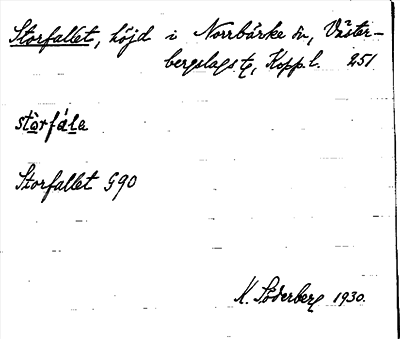 Storfallet, höjd i Norrbärke sn, Väster-
bergslags tg, Kopp. l. 251.
stòrfála
Storfallet G90
K. Söderberg 1930.